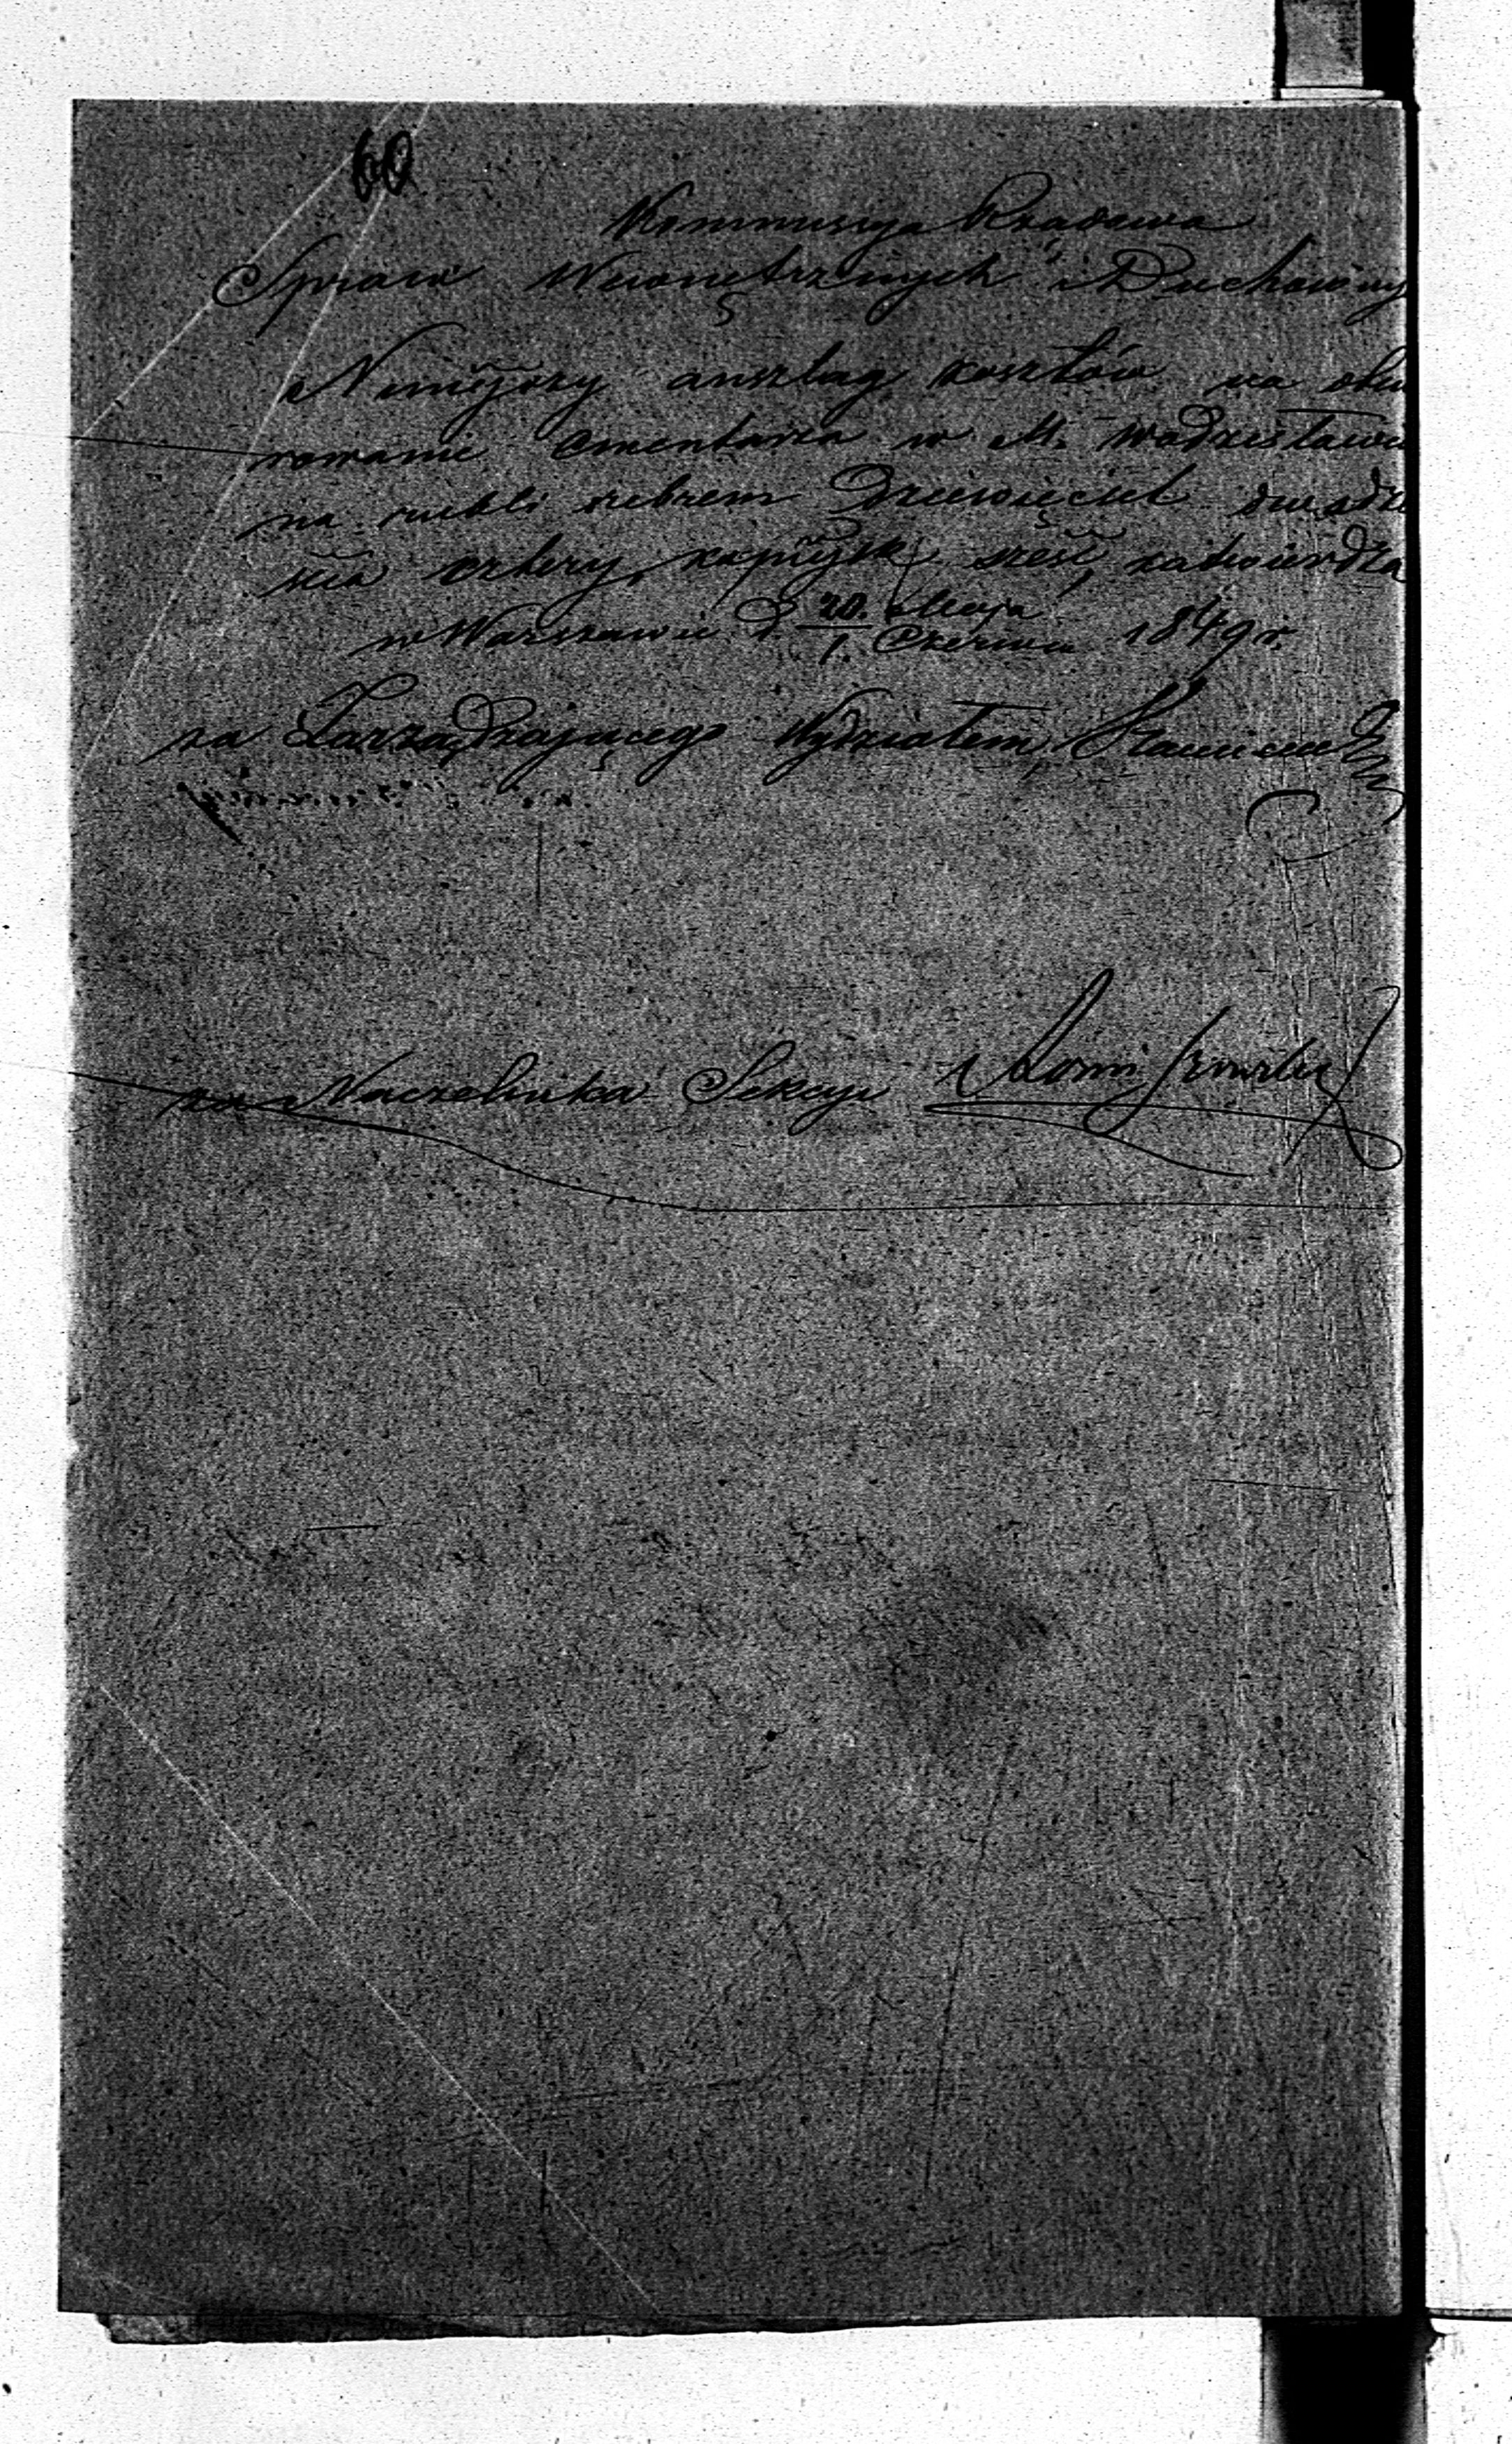 60
Kommissya Rządowa
Spraw Wewnętrznych i Duchowny
Niniejszy anszlag kosztów na obwa
rowanie cmentarza w M. Wodzisławiu
na rubli srebrem Dziewięćset dwadzie
ścia cztery, kopiejek sześć, zatwierdza
w Warszawie d. 20. Maja / 1. Czerwca 1849 r.
za Zarządzającego Wydziałem,
za Naczelnika Sekcyi